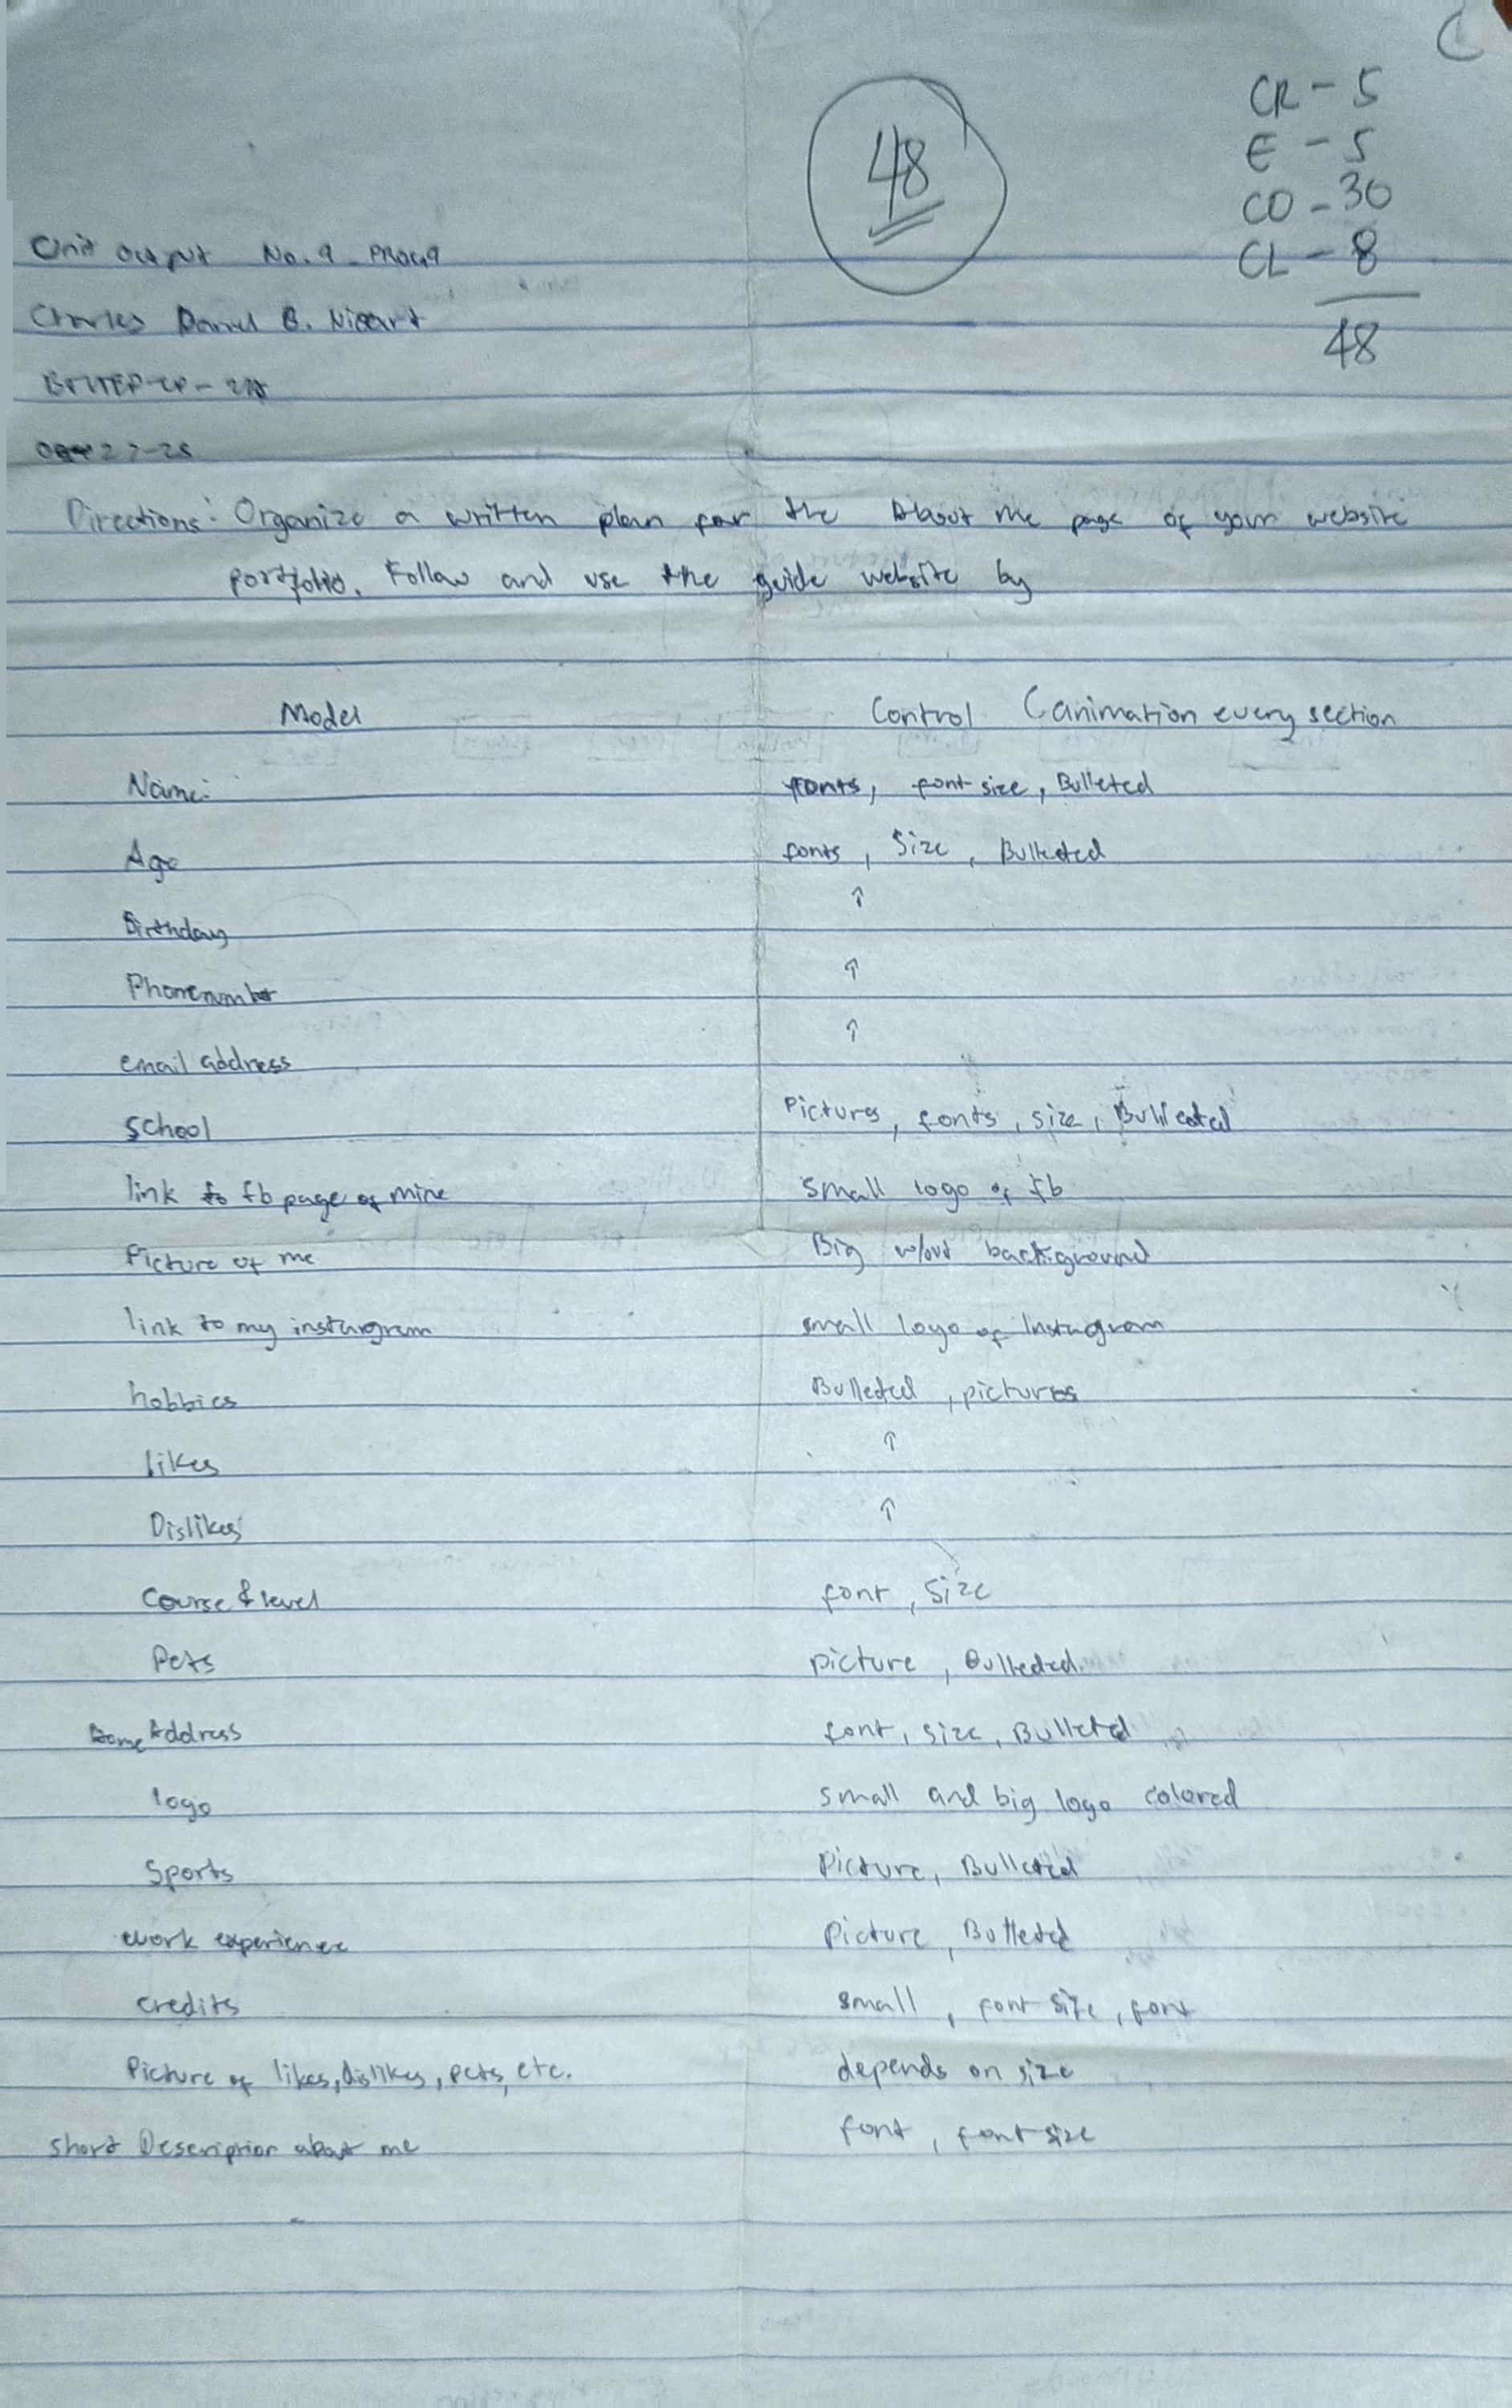 CR - 5
E - 5
CO - 30
CL - 8
48
48
Unit output No. 9 - PROG9
Charles Darrel B. Nicart
27-25
Directions: Organize a written plan for the About Me page of your website
portfolio. Follow and use the guide website by
Model Control (animation every section
Name: fonts, font size, Bulleted
Age fonts, Size, Bulleted
Birthday ↑
Phonenumber ↑
email address ↑
School Pictures, fonts, size, Bulleted
link to fb page of mine small logo of fb
Picture of me Big w/out background
link to my instargram small logo of Instagram
hobbies Bulleted, pictures
likes ↑
Dislikes ↑
Course & level font, Size
Pets picture, Bulleted
Home Address font, size, Bulleted
logo small and big logo colored
Sports Picture, Bulleted
work experience Picture, Bulleted
credits small, font size, font
Picture of likes, dislikes, pets, etc. depends on size
short Description about me font, font size